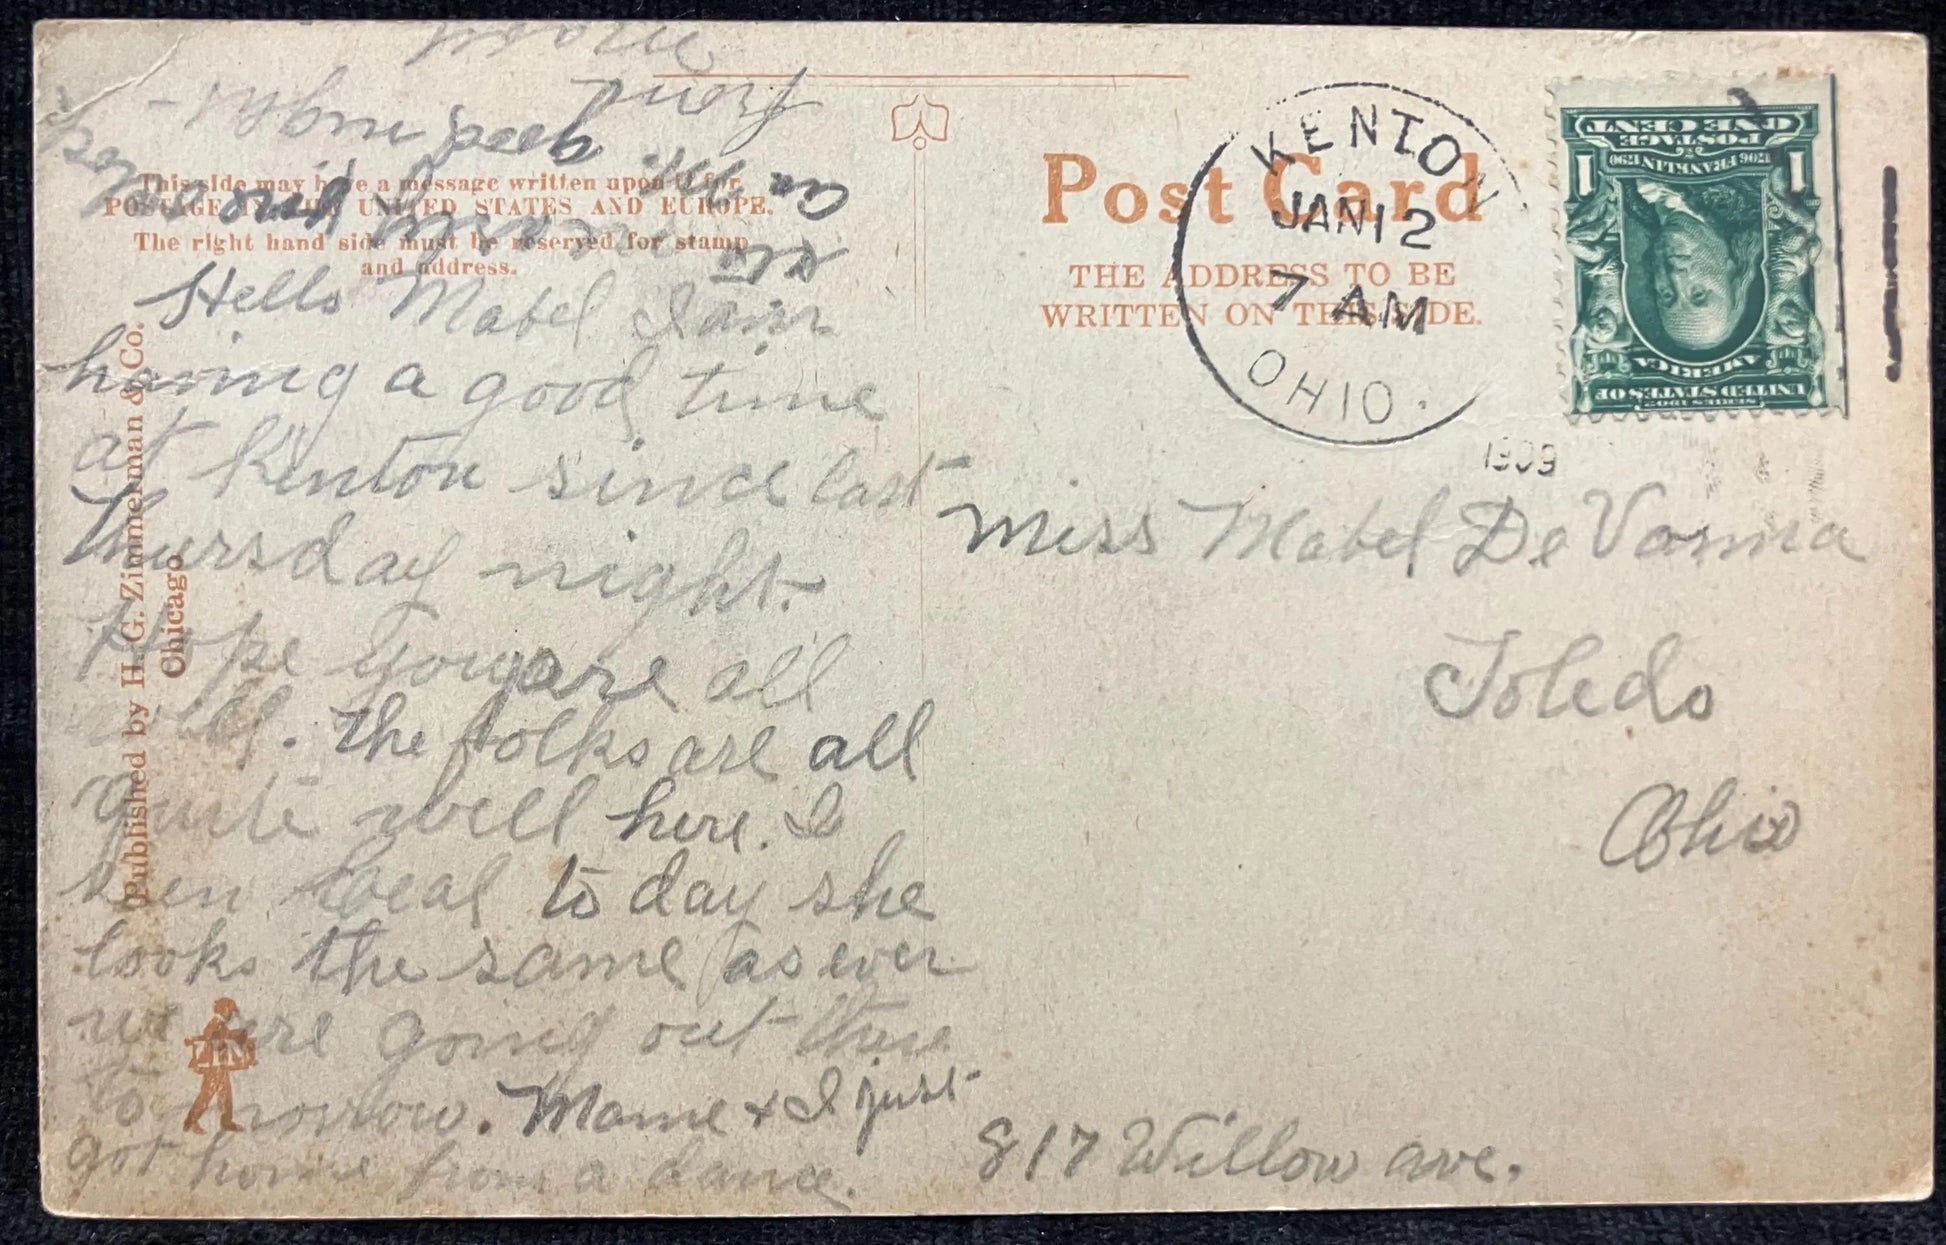 This side may have a message written upon it for
POSTAGE IN THE UNITED STATES AND EUROPE.
The right hand side must be reserved for stamp
and address.
Post Card
THE ADDRESS TO BE
WRITTEN ON THIS SIDE.
KENTON
JAN 12
7 AM
OHIO.
1909
POSTAGE
ONE CENT
1 1
1706 FRANKLIN 1790
UNITED STATES OF
AMERICA
SERIES 1902
Hello Mabel I am
having a good time
at Kenton since last
Thursday night.
Hope you are all
well. the folks are all
quite well here. I
seen to day she
looks the same as ever
we are going out there
to morrow. Mame & I just
got home from a dance.
good night
From
Miss Mabel De Vorma
Toledo
Ohio
817 Willow ave.
Published by H. G. Zimmerman & Co.
Chicago